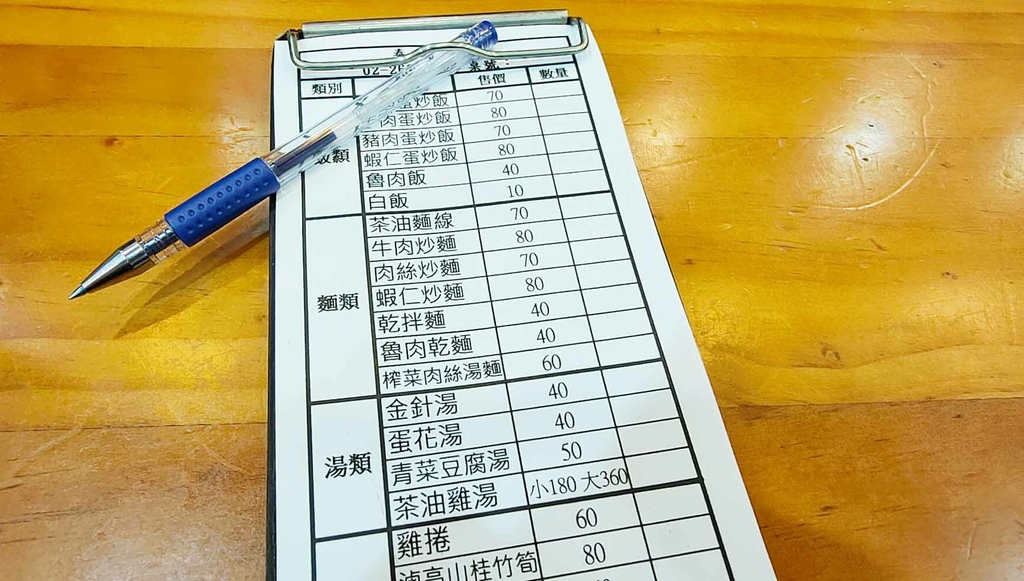 02-2
類別 售價 數量
飯類
蛋炒飯 70
肉蛋炒飯 80
豬肉蛋炒飯 70
蝦仁蛋炒飯 80
魯肉飯 40
白飯 10
麵類
茶油麵線 70
牛肉炒麵 80
肉絲炒麵 70
蝦仁炒麵 80
乾拌麵 40
魯肉乾麵 40
榨菜肉絲湯麵 60
湯類
金針湯 40
蛋花湯 40
青菜豆腐湯 50
茶油雞湯 小180 大360
雞捲 60
滷高山桂竹筍 80